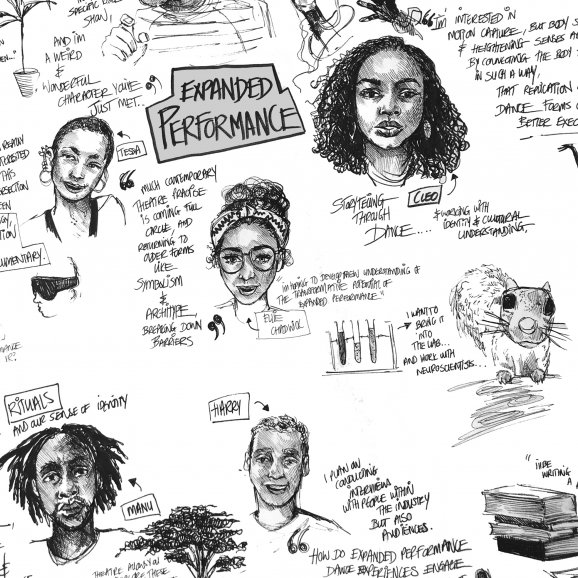 SPECIFIC
SHOW,
AND I'M
A WEIRD
&
WONDERFUL
CHARACTER YOU'VE
JUST MET...
EXPANDED
PERFORMANCE
I'M INTERESTED IN
MOTION CAPTURE, BUT BODY S
& HEIGHTENING SENSES A
BY CONNECTING THE BODY
IN SUCH A WAY,
THAT REPLICATION O
DANCE FORMS C
BETTER EXEC
TESSA
REALLY
THIS
MUCH CONTEMPORARY
THEATRE PRACTISE
IS COMING FULL
CIRCLE AND
RETURNING TO
OLDER FORMS
LIKE
SYMBOLISM
&
ARCHITYPE,
BREAKING DOWN
BARRIERS
CLEO
STORYTELLING
THROUGH
DANCE....
& WORKING WITH
IDENTITY & CULTURAL
UNDERSTANDING.
"I'M HOPING TO DEVELOP NEW UNDERSTANDING OF
THE TRANSFORMATIVE POTENTIAL OF
EXPANDED PERFORMANCE"
I WANT TO
BRING IT
INTO
THE LAB...
AND WORK WITH
NEUROSCIENTISTS...
RITUALS
AND OUR SENSE OF IDENTITY
HARRY
MANU
I PLAN ON
CONDUCTING
INTERVIEWS
WITH PEOPLE WITHIN
THE INDUSTRY
BUT ALSO
AUDIENCES.
WRITING
A
HOW DO EXPANDED PERFORMANCE
DANCE EXPERIENCES ENGAGE